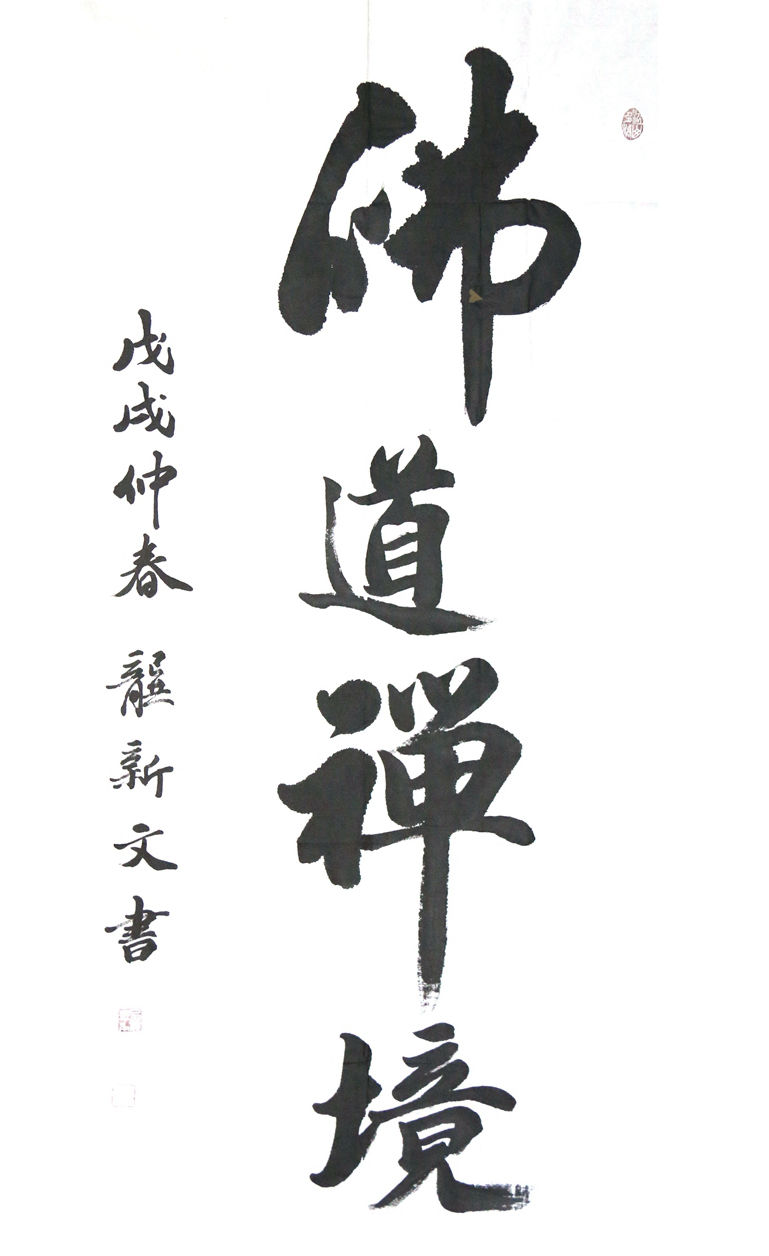 佛道禪境
戊戌仲春 龔新文書